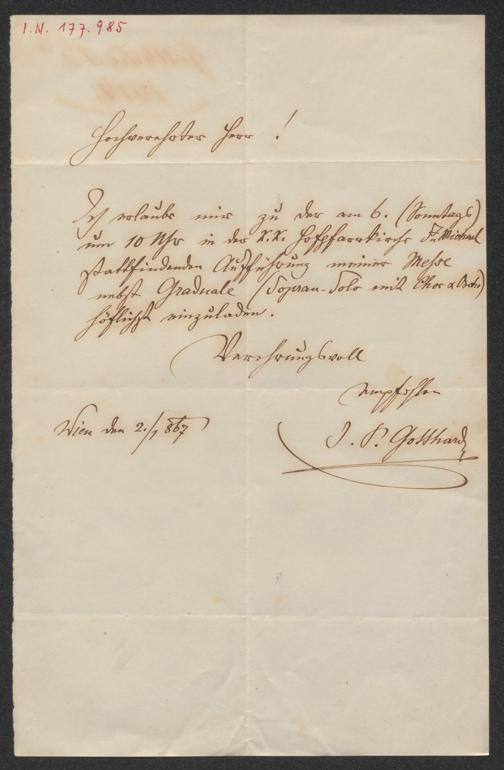 I.N. 177.985
Hochverehrter Herr !
Ich erlaube mir zu der am 6. (Sonntags)
um 10 Uhr in der K.K. Hofpfarrkirche St. Michael
stattfindenden Aufführung meiner Messe
nebst Graduale (Sopran-Solo mit Chor
höflichst einzuladen.
Verehrungsvoll
empfohlen
Wien den 2./1 867
J. P. Gotthard